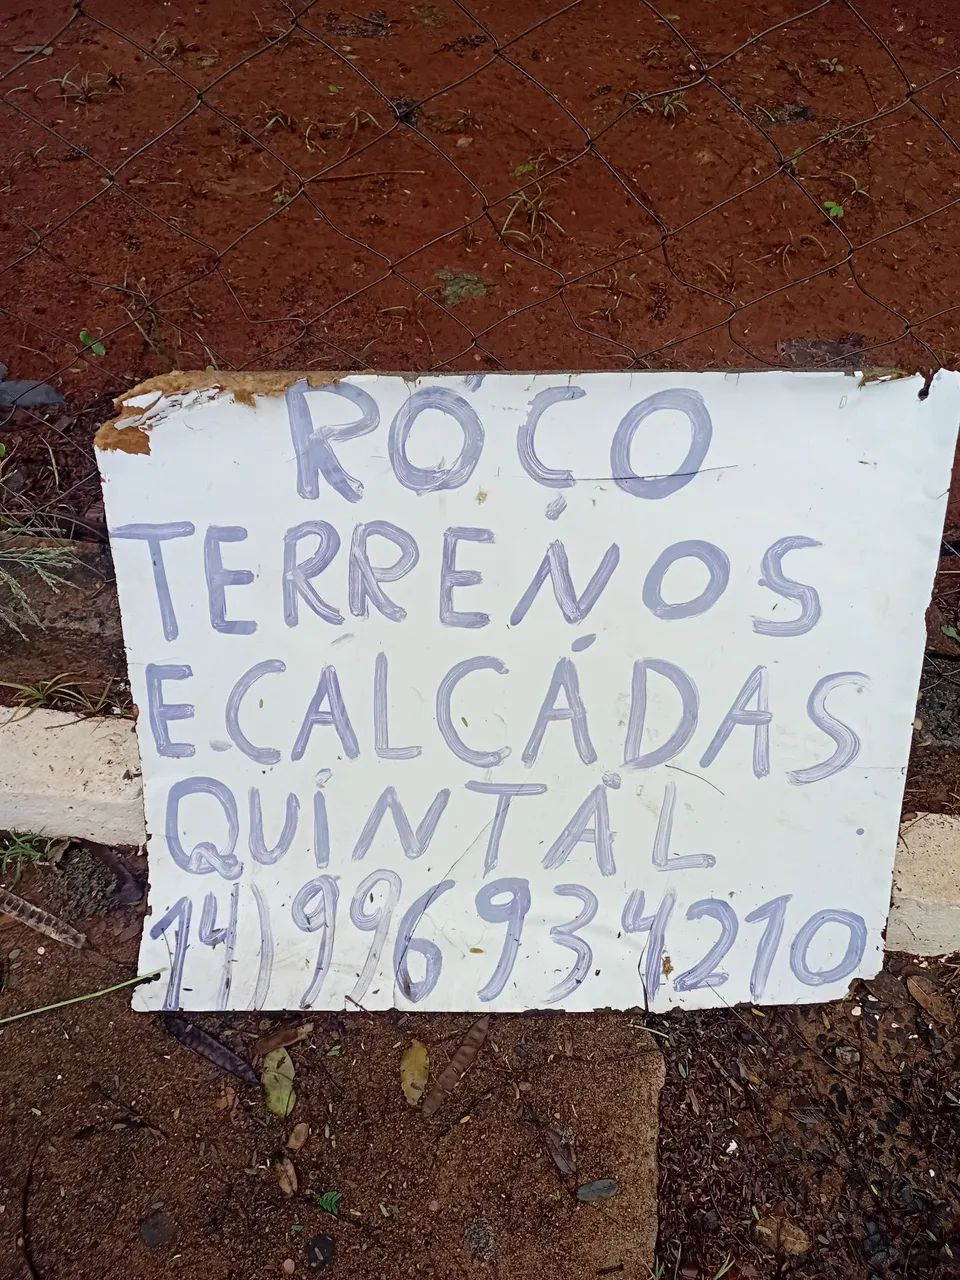 ROÇO
TERRENOS
E CALÇADAS
QUINTAL
14) 996934210